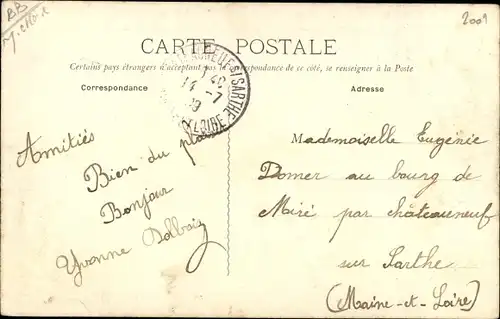 BB
2001
CARTE POSTALE
Certains pays étrangers n'acceptant pas la correspondance de ce côté, se renseigner à la Poste
Correspondance
Adresse
SARTHE
LOIRE
Amitiés
Bien du
Bonjour
Yvonne
Mademoiselle Eugénie
Domer au bourg de
Miré par châteauneuf
sur Sarthe
(Maine-et-Loire)